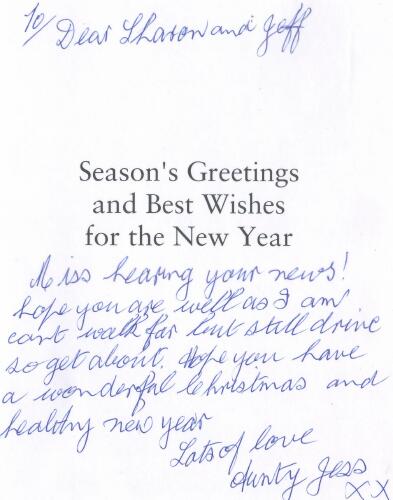 To/ Dear Sharon and Jeff
Season's Greetings
and Best Wishes
for the New Year
Miss hearing your news!
hope you are well as I am
cant walk far but still drive
so get about. Hope you have
a wonderful Christmas and
healthy new year
Lots of love
Aunty Jess
X X